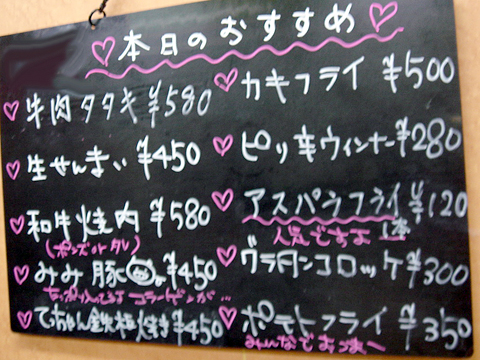 本日のおすすめ
牛肉タタキ ¥580
生せんまい ¥450
和牛焼肉 ¥580
(ポンズorタレ)
みみ豚 ¥450
コラーゲンが…
てっちゃん鉄板焼き ¥450
カキフライ ¥500
ピリ辛ウィンナー ¥280
アスパラフライ ¥120
人気ですよ 1本
グラタンコロッケ ¥300
ポテトフライ ¥350
みんなでおつまー